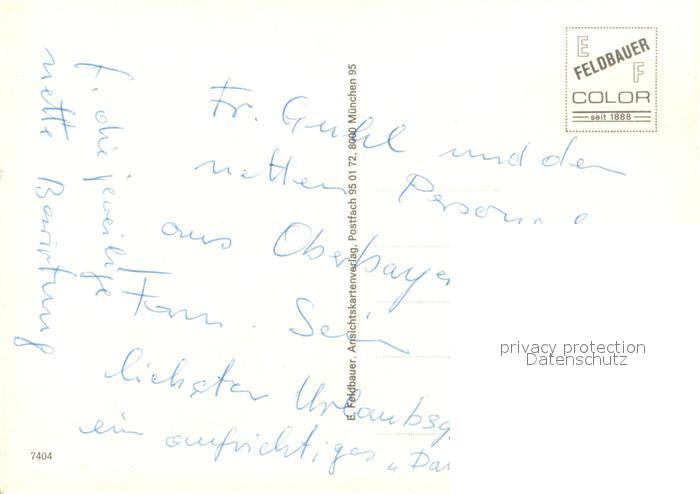 E
FELDBAUER
F
COLOR
seit 1888
Fr. Guhl und den
netten Person
aus Oberbaye
Fam.
lichster Urlaubsg
ein aufrichtiges „Dan
F. die jeweilige
nette Bewirtung
E. Feldbauer, Ansichtskartenverlag, Postfach 95 01 72, 8000 München 95
privacy protection
Datenschutz
7404